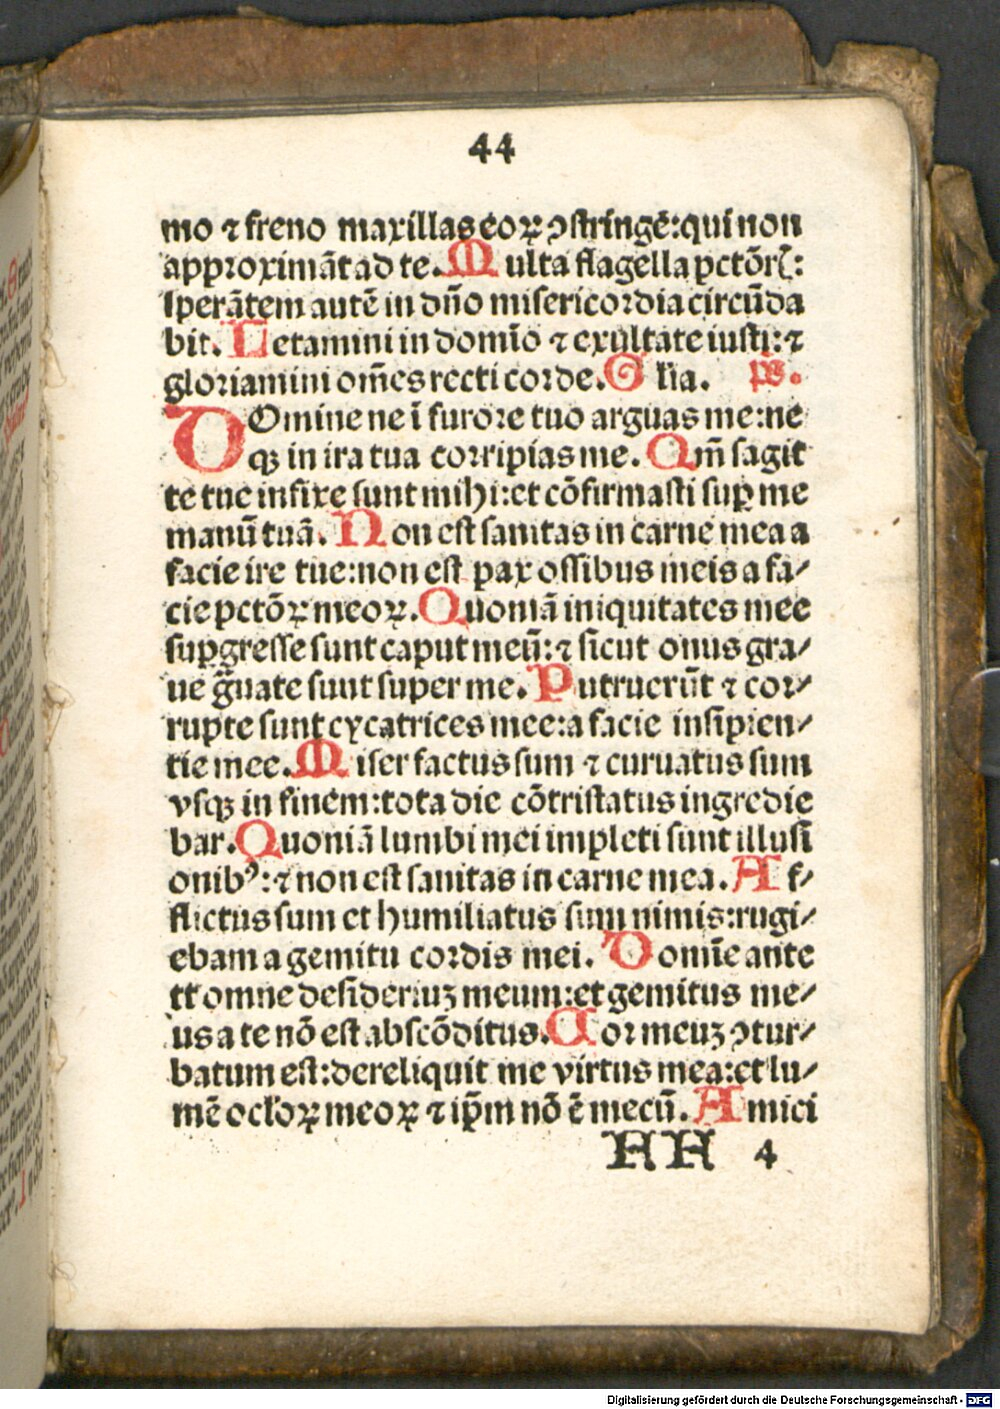 44
mo ⁊ freno maxillas eoꝝ ꝯstringē:qui non
approximāt ad te. Multa flagella pctōrꝭ:
sperātem autē in dn̄o misericordia circūda
bit. Letamini in domīo ⁊ exultate iusti:⁊
gloriamini om̄es recti corde. Glīa. ps.
DOmine ne ī furore tuo arguas me:ne
qꝫ in ira tua corripias me. Qm̄ sagit
te tue infixe sunt mihi:et cōfirmasti suꝑ me
manū tuā. Non est sanitas in carne mea a
facie ire tue:non est pax ossibus meis a fa/
cie pctōꝝ meoꝝ. Quoniā iniquitates mee
suꝑgresse sunt caput meū:⁊ sicut onus gra/
ue g̃uate sunt super me. Putruerūt ⁊ cor/
rupte sunt cycatrices mee:a facie insipien/
tie mee. Miser factus sum ⁊ curuatus sum
vsqꝫ in finem:tota die cōtristatus ingredie
bar. Quoniā lumbi mei impleti sunt illusi
onibꝰ:⁊ non est sanitas in carne mea. Af/
flictus sum et humiliatus sum nimis:rugi/
ebam a gemitu cordis mei. Domīe ante
te omne desideriuꝫ meum:et gemitus me/
us a te nō est abscōditus. Cor meuꝫ ꝯtur/
batum est:dereliquit me virtus mea:et lu/
mē ocl'oꝝ meoꝝ ⁊ ip̄m nō ē mecū. Amici
HH 4
Digitalisierung gefördert durch die Deutsche Forschungsgemeinschaft - DFG